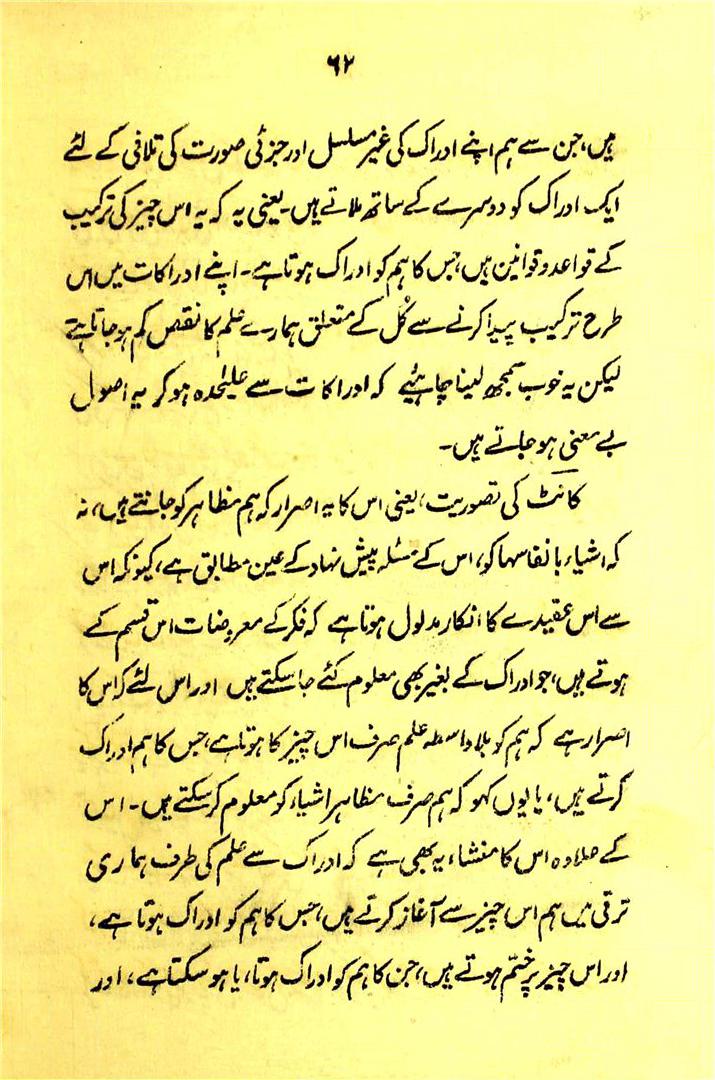 ۶۲
ہیں، جن سے ہم اپنے ادراک کی غیر مسلسل اور جزئی صورت کی تلافی کے لئے
ایک ادراک کو دوسرے کے ساتھ ملاتے ہیں۔ یعنی یہ کہ یہ اس چیز کی ترکیب
کے قواعد و قوانین ہیں، جس کا ہم کو ادراک ہوتا ہے۔ اپنے ادراکات میں اس
طرح ترکیب پیدا کرنے سے کُل کے متعلق ہمارے علم کا نقص کم ہو جاتا ہے
لیکن یہ خوب سمجھ لینا چاہئیے کہ ادراکات سے علیٰحدہ ہو کر یہ اصول
بے معنی ہو جاتے ہیں۔
کانٹ کی تصوریت، یعنی اس کا یہ اصرار کہ ہم مظاہر کو جانتے ہیں، نہ
کہ اشیاء بانفاسہا کو، اس کے مسئلہ پیش نہاد کے عین مطابق ہے، کیونکہ اس
سے اس عقیدے کا انکار مدلول ہوتا ہے کہ فکر کے معروضات اس قسم کے
ہوتے ہیں، جو ادراک کے بغیر بھی معلوم کئے جا سکتے ہیں اور اس لئے کہ اس کا
اصرار ہے کہ ہم کو بلاواسطہ علم صرف اس چیز کا ہوتا ہے، جس کا ہم ادراک
کرتے ہیں، یا یوں کہو کہ ہم صرف مظاہر اشیاء کو معلوم کر سکتے ہیں۔ اس
کے علاوہ اس کا منشاء یہ بھی ہے کہ ادراک سے علم کی طرف ہماری
ترقی میں ہم اس چیز سے آغاز کرتے ہیں، جس کا ہم کو ادراک ہوتا ہے،
اور اس چیز پر ختم ہوتے ہیں، جن کا ہم کو ادراک ہوتا، یا ہو سکتا ہے، اور